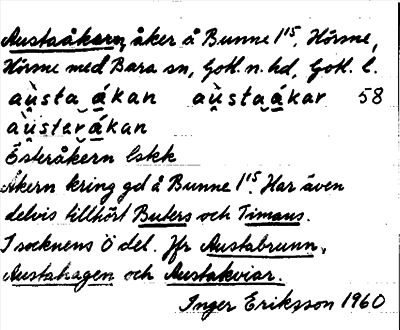 Austaåkarn, åker å Bunne 1¹⁵, Hörsne,
Hörsne med Bara sn, Gotl. n. hd, Gotl. l.
aùsta ákan aùstaákar 58
aùsterákan
Österåkern lskk
Åkern kring gd å Bunne 1¹⁵. Har även
delvis tillhört Buters och Timans.
I socknens Ö del. Jfr Austabrunn,
Austahagen och Austakviar.
Inger Eriksson 1960